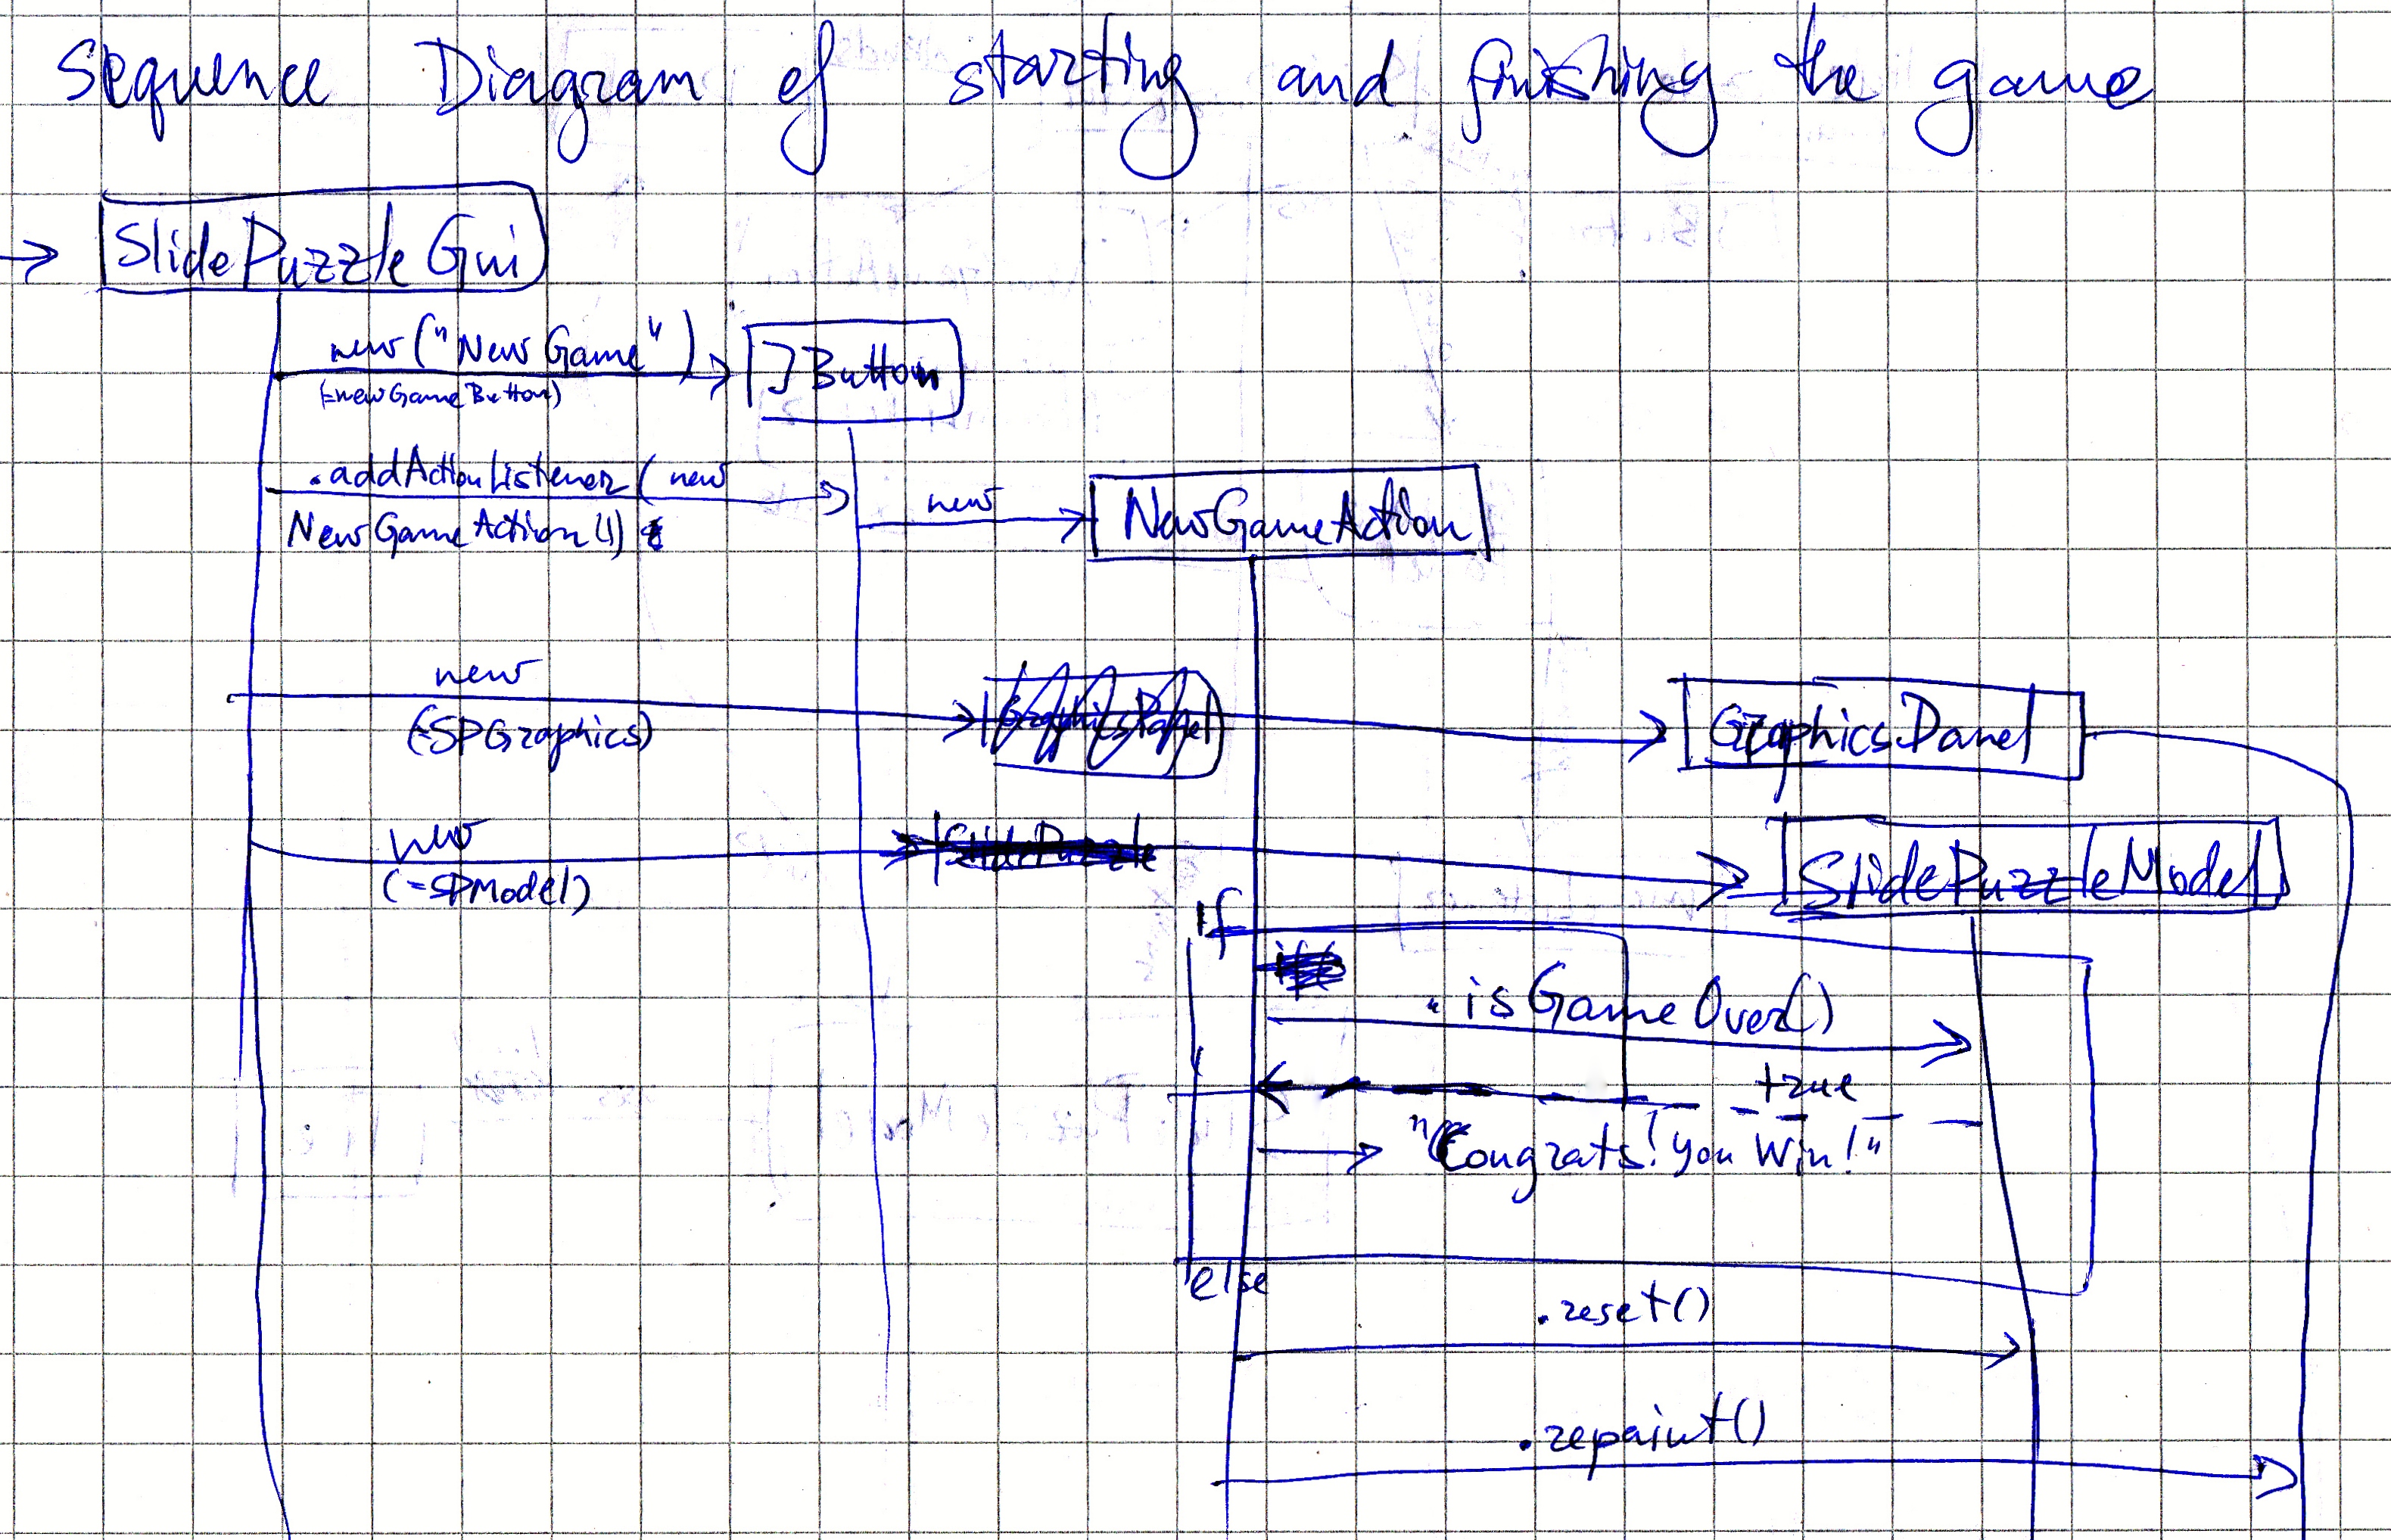 Sequence Diagram of starting and finishing the game
SlidePuzzleGui
new("New Game")
(=newGameButton)
JButton
.addActionListener(new
NewGameAction())
new
NewGameAction
new
(=SPGraphics)
GraphicsPanel
GraphicsPanel
new
(=SPModel)
SlidePuzzle
SlidePuzzleModel
if
.isGameOver()
true
"Congrats! You Win!"
else
.reset()
.repaint()